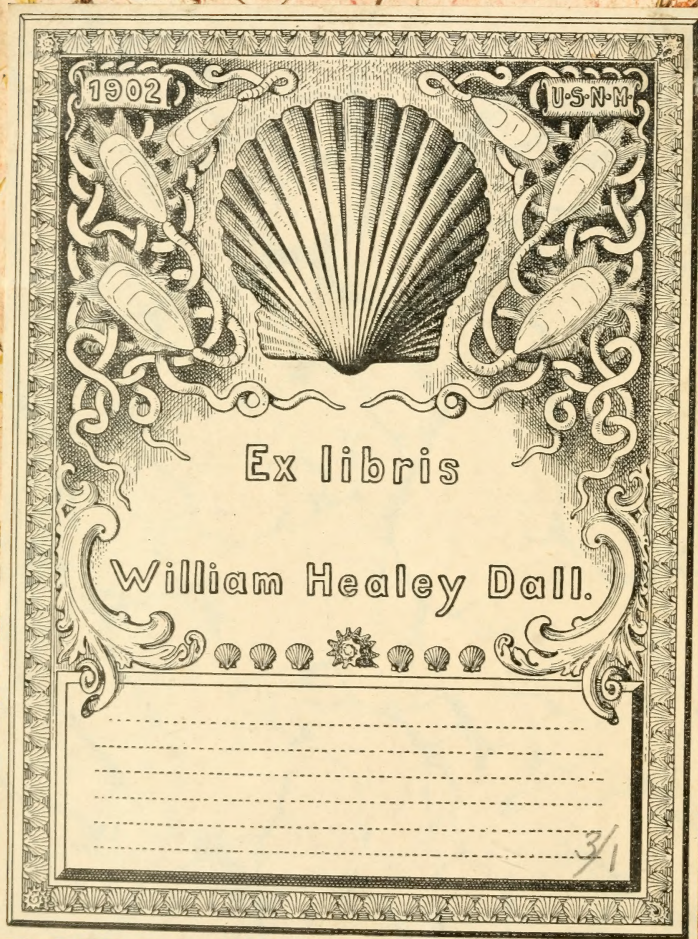 1902
U·S·N·M·
Ex libris
William Healey Dall.
3/1